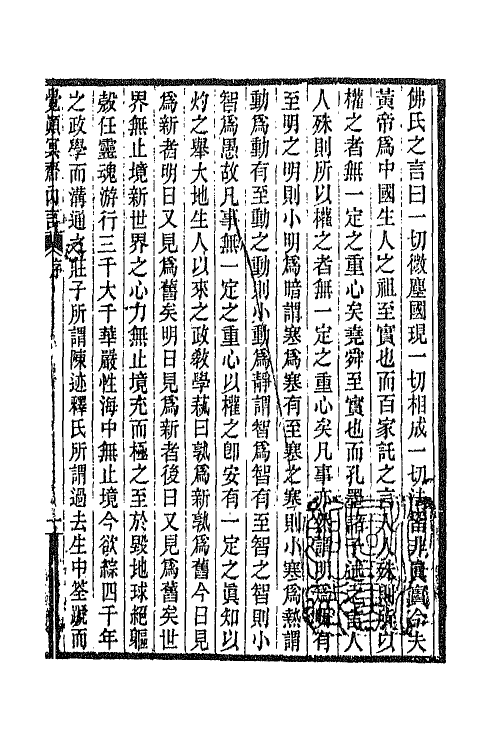 佛氏之言曰一切微塵國現一切相成一切法留非真實今夫
黃帝爲中國生人之祖至實也而百家託之言人人殊則所以
權之者無一定之重心矣堯舜至實也而孔墨諸子述之言人
人殊則所以權之者無一定之重心矣凡事亦然謂明爲明有
至明之明則小明爲暗謂寒爲寒有至寒之寒則小寒爲熱謂
動爲動有至動之動則小動爲靜謂智爲智有至智之智則小
智爲愚故凡事無一定之重心以權之卽安有一定之眞知以
灼之舉大地生人以來之政敎學蓺曰孰爲新孰爲舊今日見
爲新者明日又見爲舊矣明日見爲新者後日又見爲舊矣世
界無止境新世界之心力無止境充而極之至於毀地球絕軀
殼任靈魂游行三千大千華嚴性海中無止境今欲綜四千年
之政學而溝通之莊子所謂陳迹釋氏所謂過去生中筌蹏而
覺顛冥齋內言 序